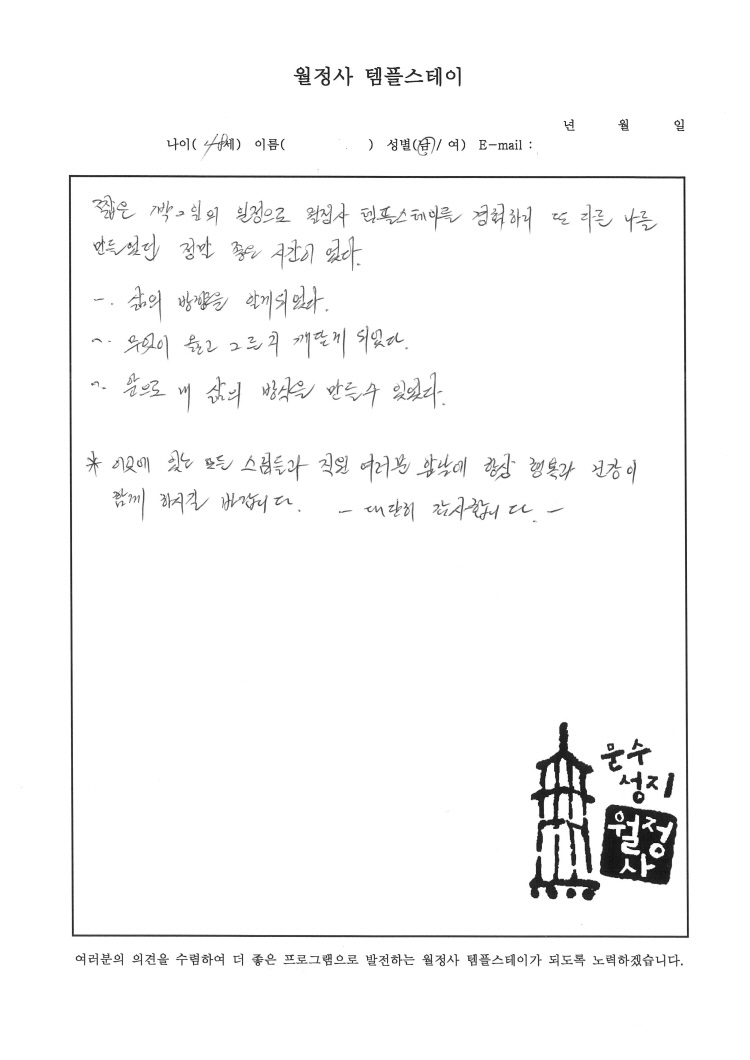 월정사 템플스테이
년 월 일
나이( 48세) 이름( ) 성별(남/ 여) E-mail :
짧은 1박2일의 일정으로 월정사 템플스테이를 경험하며 또 다른 나를
만들었던 정말 좋은 시간이 었다.
一. 삶의 방향을 알게되었다.
무엇이 옳고 그른지 깨닫게 되었다.
앞으로 내 삶의 방식을 만들수 있었다.
* 이곳에 있는 모든 스님들과 직원 여러분 앞날에 항상 행복과 건강이
함께 하시길 바랍니다. - 대단히 감사합니다. -
문수
성지
월정
사
여러분의 의견을 수렴하여 더 좋은 프로그램으로 발전하는 월정사 템플스테이가 되도록 노력하겠습니다.